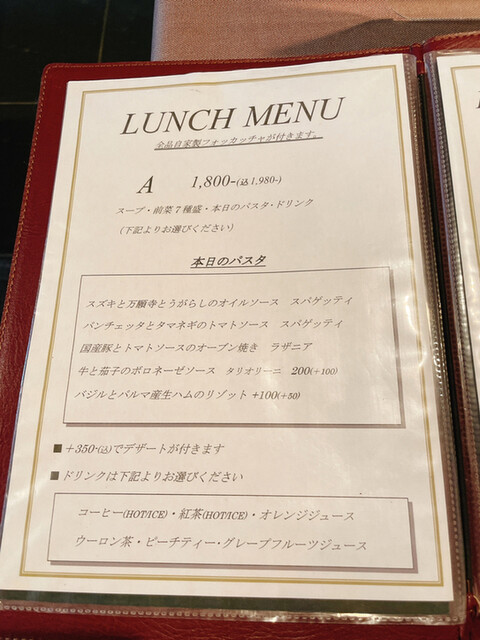 LUNCH MENU
全品自家製フォッカッチャが付きます。
A 1,800-(込1.980-)
スープ・前菜7種盛・本日のパスタ・ドリンク
（下記よりお選びください）
本日のパスタ
スズキと万願寺とうがらしのオイルソース スパゲッティ
パンチェッタとタマネギのトマトソース スパゲッティ
国産豚とトマトソースのオーブン焼き ラザニア
牛と茄子のボロネーゼソース タリオリーニ 200(+100)
バジルとパルマ産生ハムのリゾット +100(+50)
■+350-(込)でデザートが付きます
■ドリンクは下記よりお選びください
コーヒー(HOT/ICE)・紅茶(HOT/ICE)・オレンジジュース
ウーロン茶・ピーチティー・グレープフルーツジュース